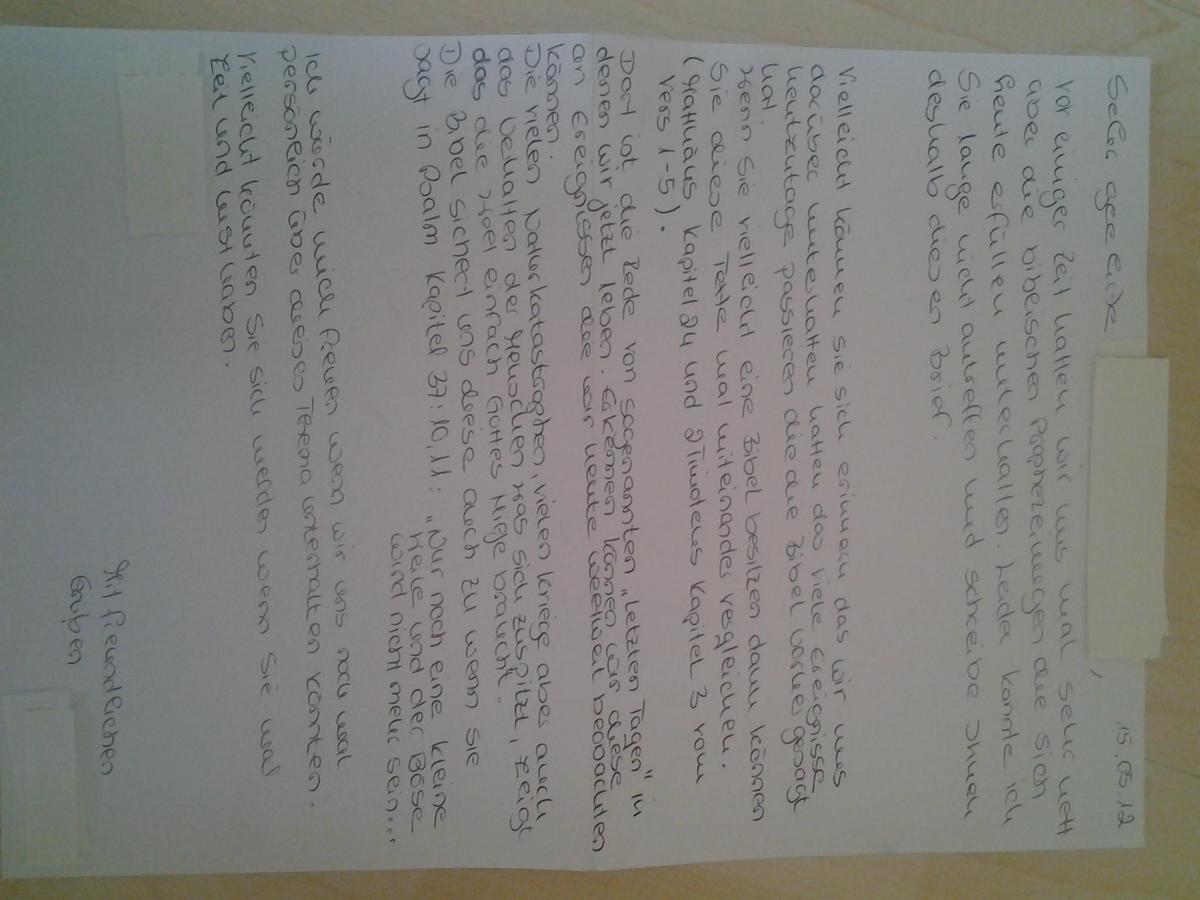 15.05.12
Sehr geehrte ,
vor einiger Zeit hatten wir uns mal sehr nett
über die biblischen Prophezeiungen die sich
heute erfüllen unterhalten. Leider konnte ich
Sie lange nicht antreffen und schreibe Ihnen
deshalb diesen Brief.
Vielleicht können sie sich erinnern das wir uns
darüber unterhalten hatten das viele Ereignisse
heutzutage passieren die die Bibel vorhergesagt
hat.
Wenn sie vielleicht eine Bibel besitzen dann können
Sie diese Texte mal miteinander vergleichen.
(Matthäus Kapitel 24 und 2 Timoteus Kapitel 3 vom
Vers 1-5).
Dort ist die Rede von sogenannten „letzten Tagen" in
denen wir jetzt leben. Erkennen können wir diese
an Ereignissen die wir heute weltweit beobachten
können.
Die vielen Naturkatastrophen, vielen Kriege aber auch
das behalten der Menschen was sich zuspitzt, zeigt
das die Welt einfach Gottes Hilfe braucht.
Die Bibel sichert uns diese auch zu wenn sie
sagt in Psalm Kapitel 37:10,11: „Nur noch eine kleine
Weile und der Böse
wird nicht mehr sein...
Ich würde mich freuen wenn wir uns noch mal
persönlich über dieses Tehma unterhalten könnten.
Vielleicht könnten Sie sich melden wenn Sie mal
Zeit und Lust haben.
Mit freundlichen
Grüßen